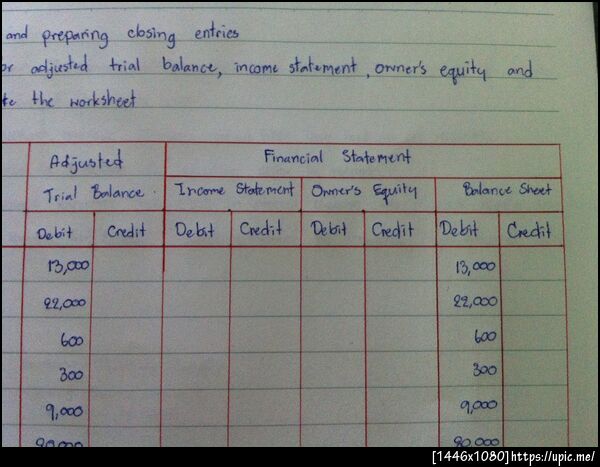 and preparing closing entries
or adjusted trial balance, income statement, owner's equity and
the worksheet
Adjusted Financial Statement
Trial Balance. Income Statement Owner's Equity Balance Sheet
Debit Credit Debit Credit Debit Credit Debit Credit
13,000 13,000
22,000 22,000
600 600
300 300
9,000 9,000
80,000
[1446x1080]https://upic.me/